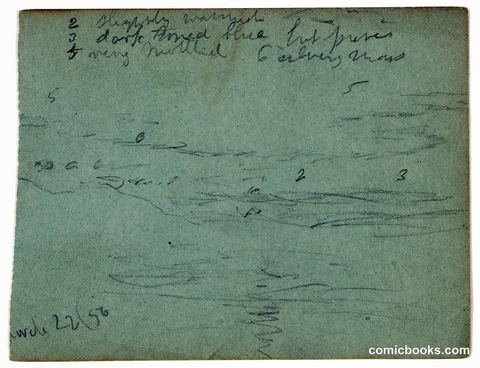 2 slightly
3 dark toned blue but
5 very mottled 6 silvery mass
5 5
6
6 6
2 3
22/56
comicbooks.com